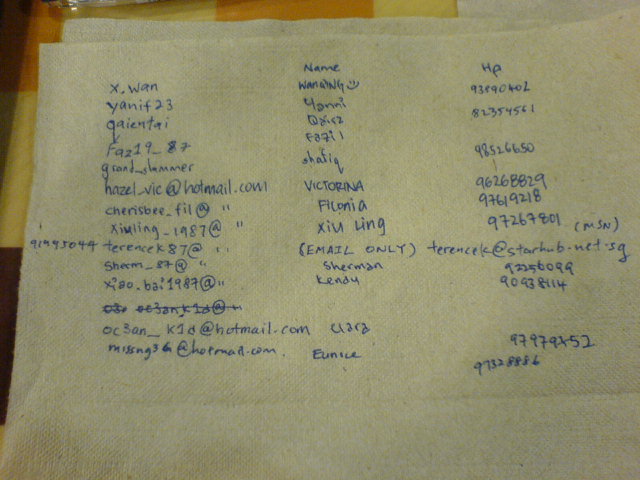 Name Hp
x.wan WanQING 93890402
yanif23 Yanni 82354561
qaientai Qaisz
Faz19_87 Fazil
grand_slammer shafiq 98526650
hazel_vic@hotmail.com VICTORINA 96268829
cherisbee_fil@ " Filonia 97619218
Xiuling_1987@ " Xiu Ling 97267801 (MSN)
91445044 terencek87@ " (EMAIL ONLY) terencek@starhub.net.sg
sherm_87@ " Sherman 92256099
xiao.bai1987@ " Kendy 90938114
oc3an_k1d@
oc3an_k1d@hotmail.com Clara 97979252
missng36@hotmail.com. Eunice 97328886